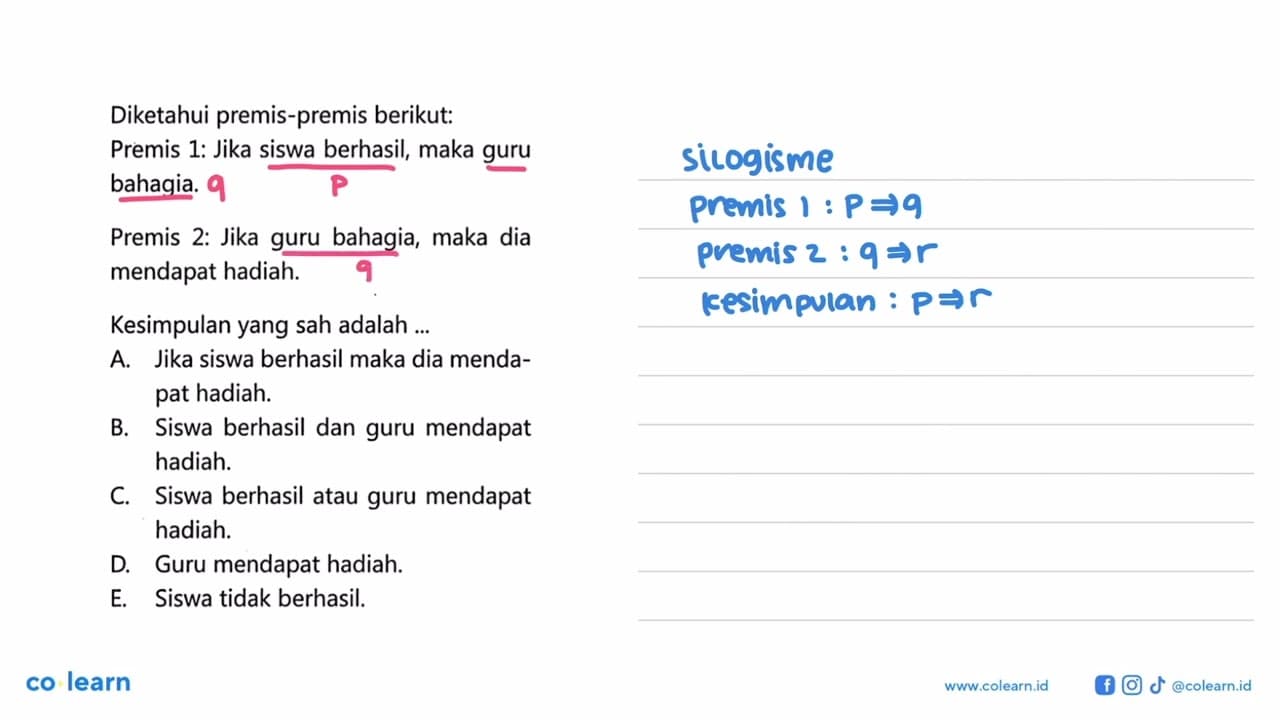 Diketahui premis-premis berikut:
Premis 1: Jika siswa berhasil, maka guru
bahagia. q p
Premis 2: Jika guru bahagia, maka dia
mendapat hadiah. q
Kesimpulan yang sah adalah ...
A. Jika siswa berhasil maka dia menda-
pat hadiah.
B. Siswa berhasil dan guru mendapat
hadiah.
C. Siswa berhasil atau guru mendapat
hadiah.
D. Guru mendapat hadiah.
E. Siswa tidak berhasil.
silogisme
premis 1 : p ⇒ q
premis 2 : q ⇒ r
kesimpulan : p ⇒ r
co learn
www.colearn.id
@colearn.id